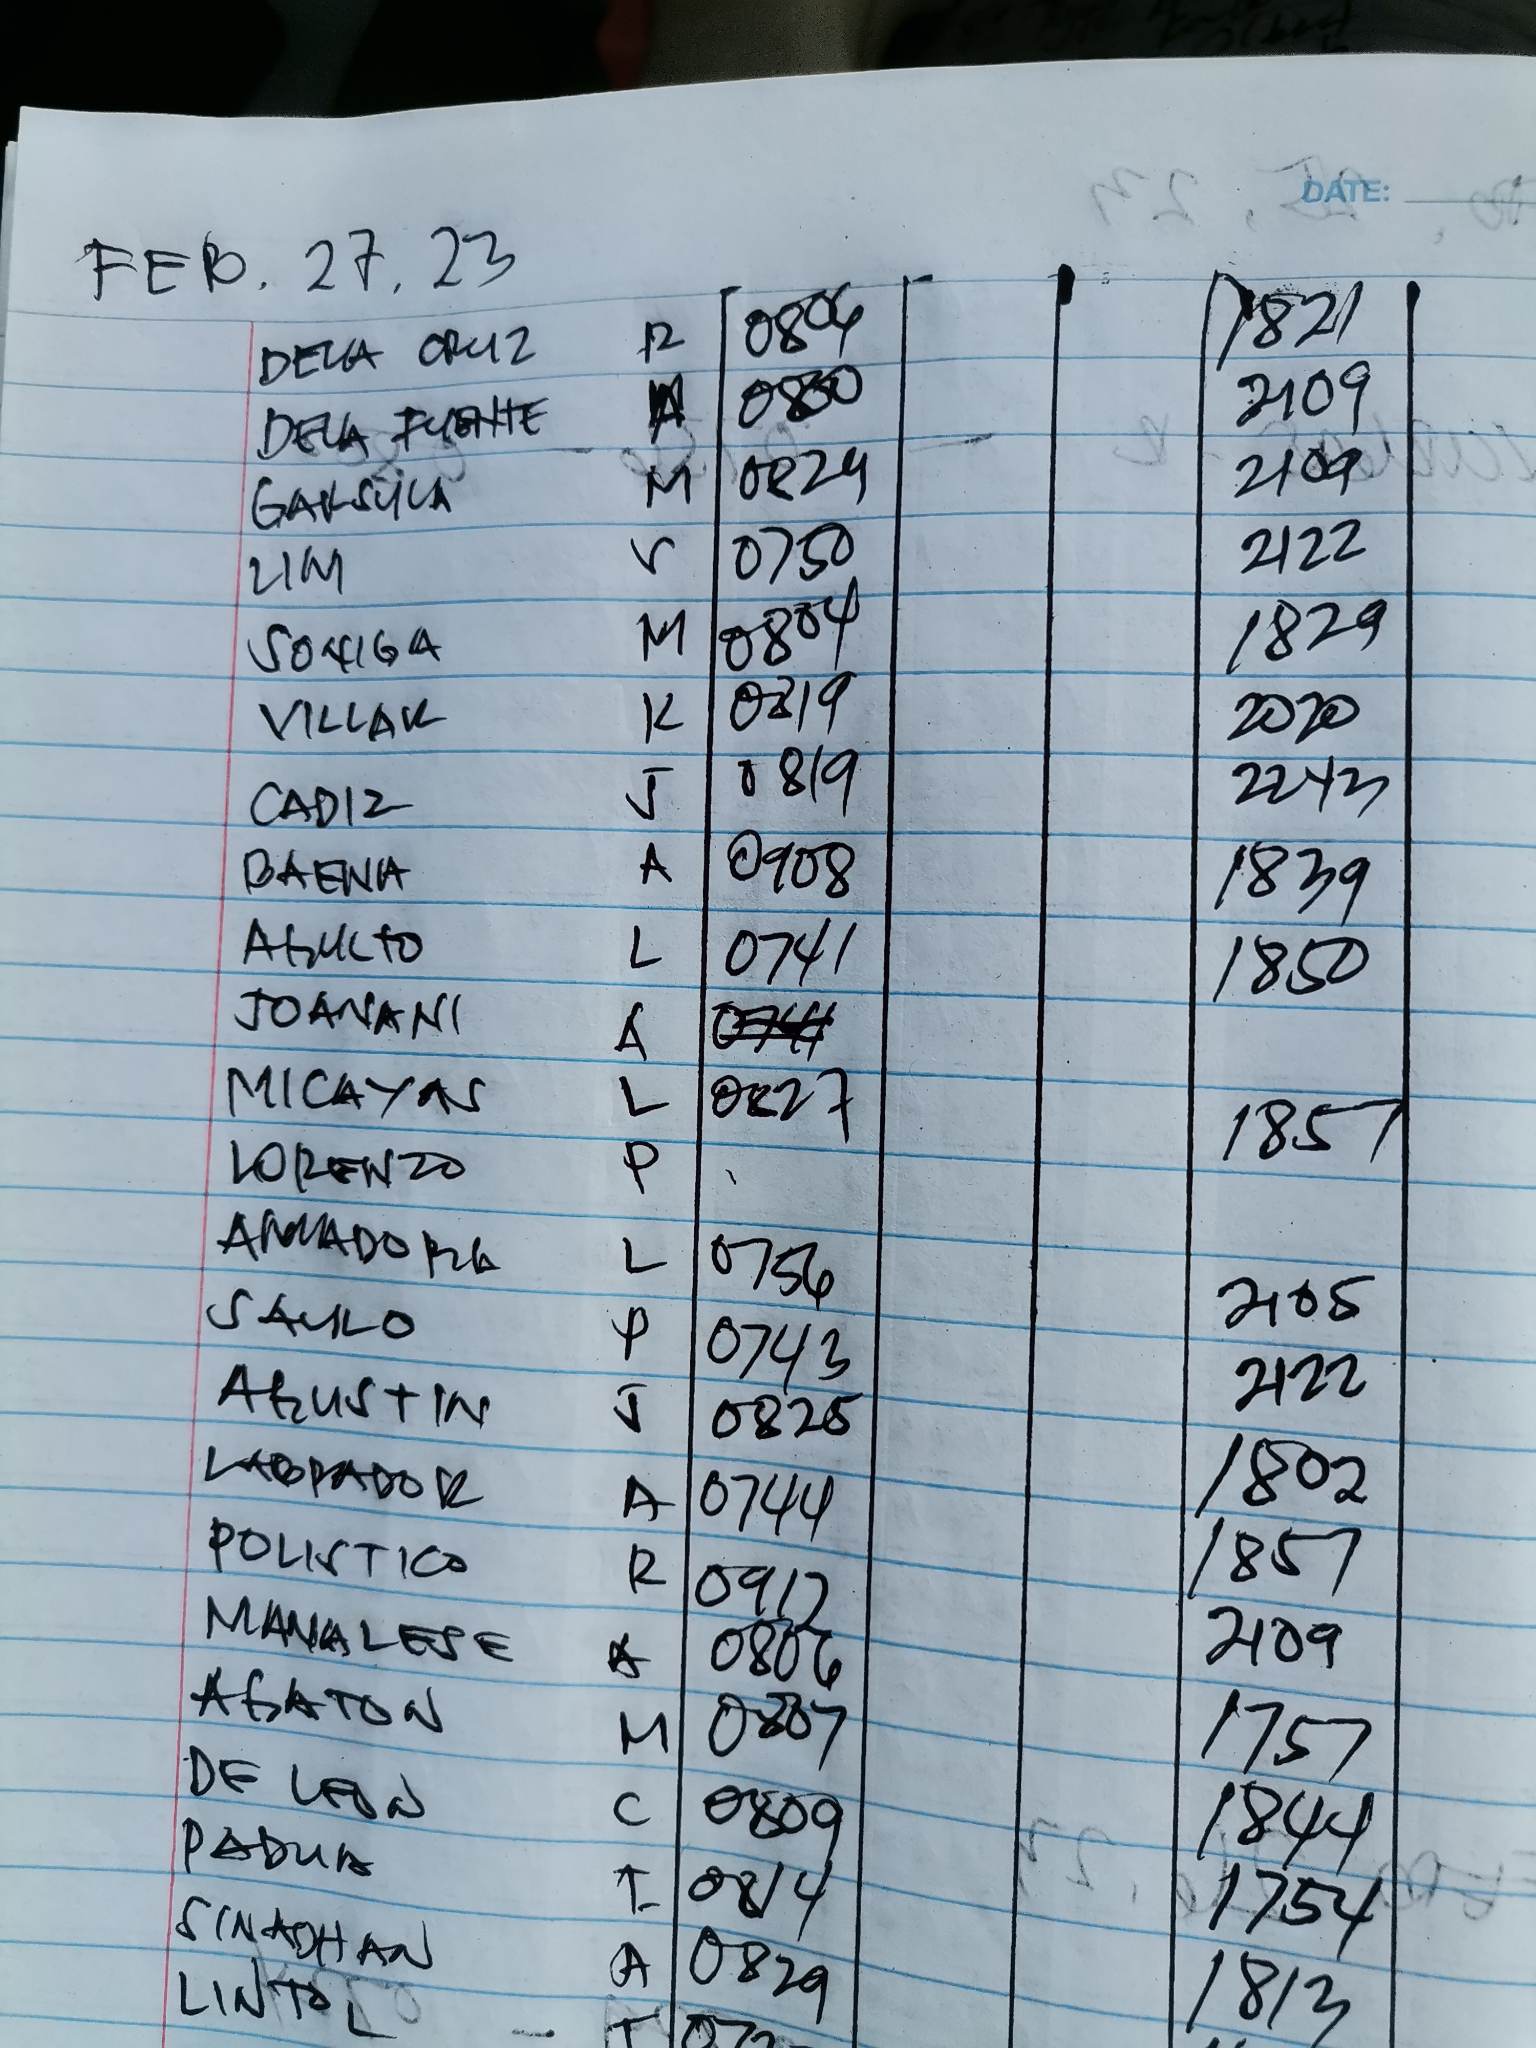 DATE:
FEB. 27, 23
DELA CRUZ R 0804 1821
DELA FUENTE A 0830 2109
GARSULA M 0829 2109
LIM V 0750 2122
SONIGA M 0804 1829
VILLAR K 0819 2020
CADIZ J 0819 2243
BAENA A 0908 1839
AGULTO L 0741 1850
JOANANI A 0741
MICAYAS L 0827 1857
LORENZO P
AMADORA L 0756 2105
SAULO P 0743 2122
AGUSTIN J 0825 1802
LABRADOR A 0744 1857
POLISTICO R 0912 2109
MANALESE A 0806 1757
AGATON M 0807 1844
DE LEON C 0809 1754
PADUA I 0814 1813
SINADHAN A 0829
LINTOL